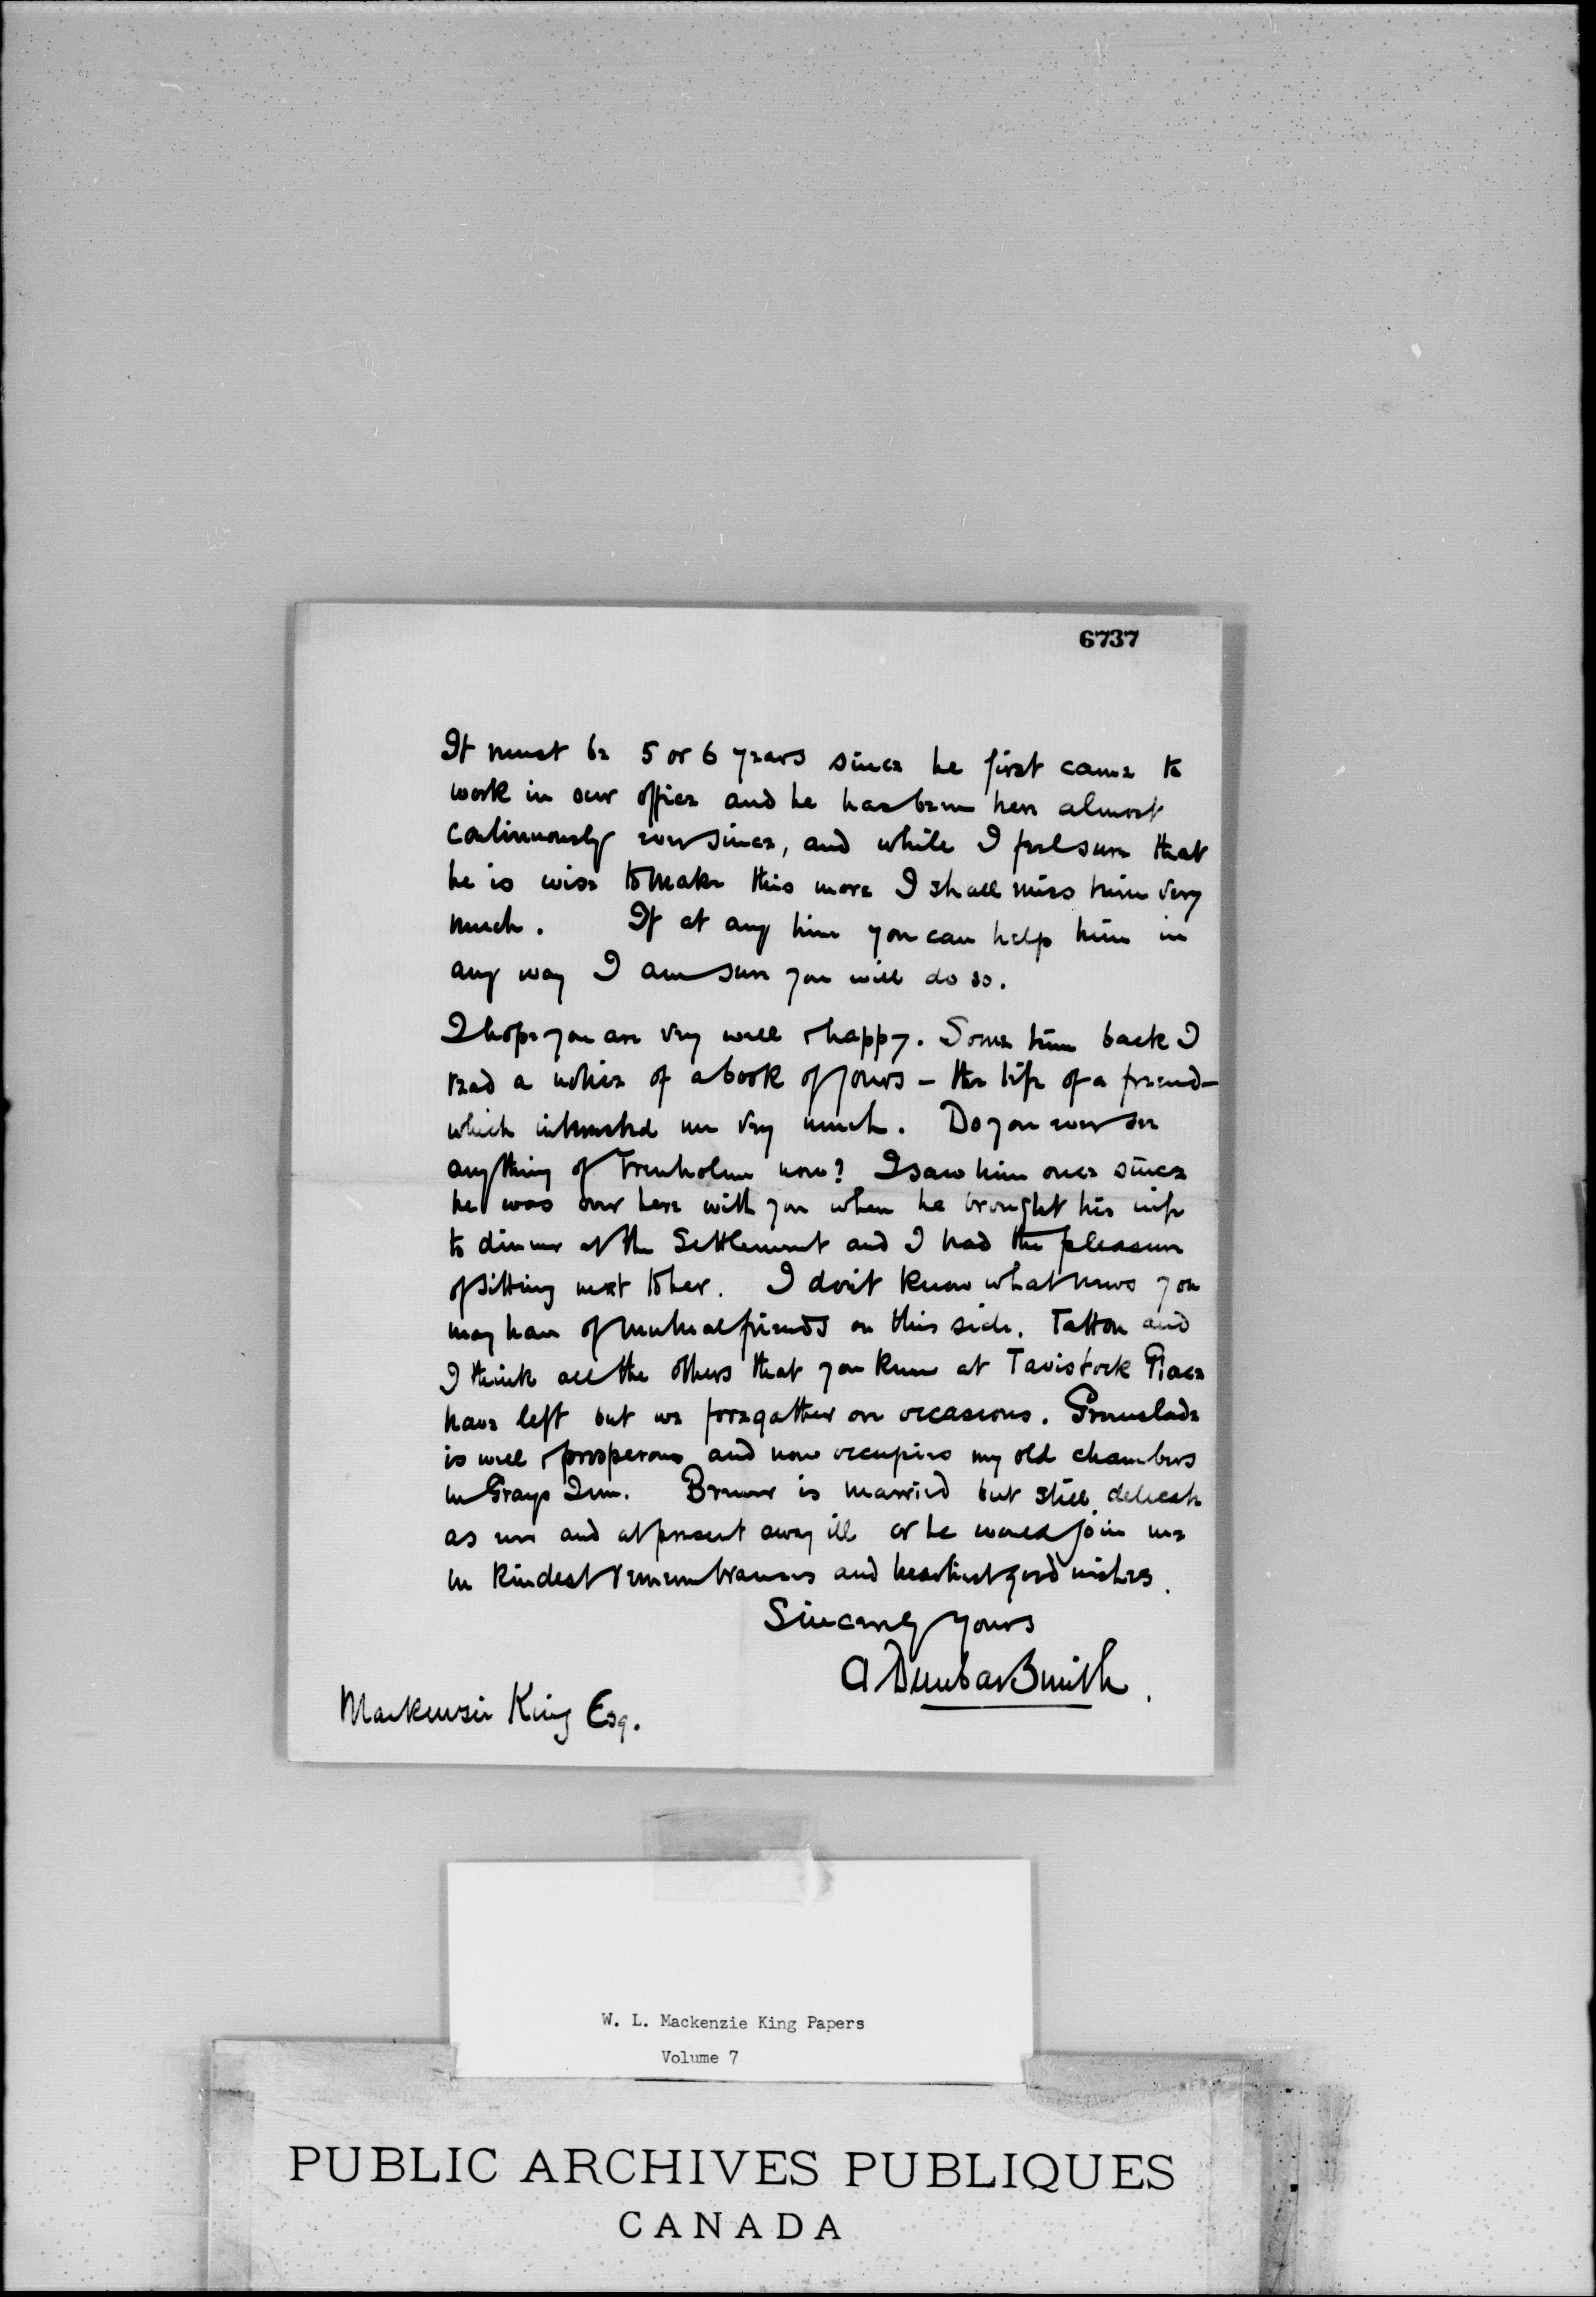 6737
It must be 5 or 6 years since he first came to
work in our office and he has been here almost
continuously ever since, and while I feel sure that
he is wise to make this move I shall miss him very
much. If at any time you can help him in
any way I am sure you will do so.
I hope you are very well & happy. Some time back I
read a notice of a book of yours – the life of a friend –
which interested me very much. Do you ever see
anything of Trenholme now? I saw him once since
he was over here with you when he brought his wife
to dinner at the Settlement and I had the pleasure
of sitting next to her. I don't know what news you
may have of mutual friends on this side. Tatton and
I think all the others that you knew at Tavistock Place
have left but we foregather on occasions.
is well & prosperous and now occupies my old chambers
in Grays Inn. Brewer is married but still delicate
as ever and at present away ill or he would join me
in kindest remembrances and heartiest good wishes.
Sincerely yours
A Dunbar Smith.
Mackenzie King Esq.
W. L. Mackenzie King Papers
Volume 7
PUBLIC ARCHIVES PUBLIQUES
CANADA